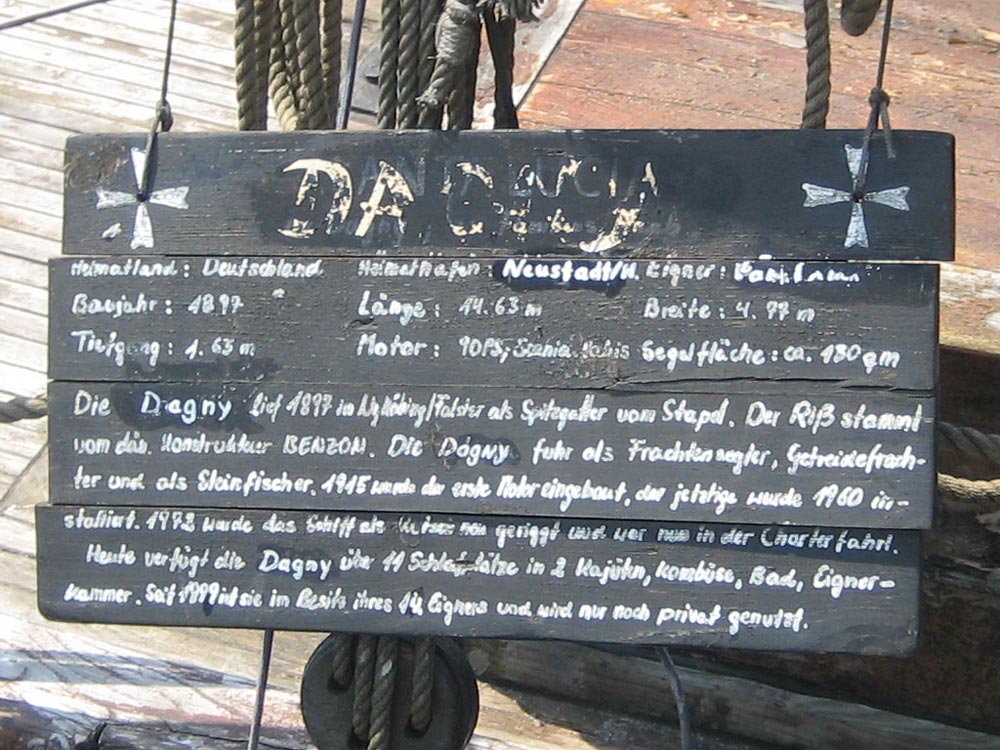 DAGNY
Heimatland: Deutschland Heimathafen: Neustadt/H. Eigner:
Baujahr: 1897 Länge: 14.63 m Breite: 4.77 m
Tiefgang: 1.63 m Motor: 90PS, Scania Segelfläche: ca. 180 qm
Die Dagny lief 1897 in Nyköbing/Falster als Spitzgatter vom Stapel. Der Riß stammt
vom dän. Konstrukteur BENZON. Die Dagny fuhr als Frachtensegler, Getreidefrach-
ter und als Steinfischer. 1915 wurde der erste Motor eingebaut, der jetztige wurde 1960 in-
stalliert. 1972 wurde das Schiff als neu geriggt und war nun in der Charterfahrt.
Heute verfügt die Dagny über 11 Schlafplätze in 2 Kajüten, Kombüse, Bad, Eigner-
kammer. Seit 1999 ist sie im Besitz ihres 14. Eigners und wird nur noch privat genutzt.